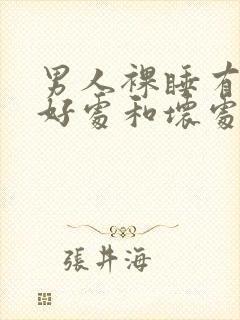 男人裸睡有
好處和壞處
張井海